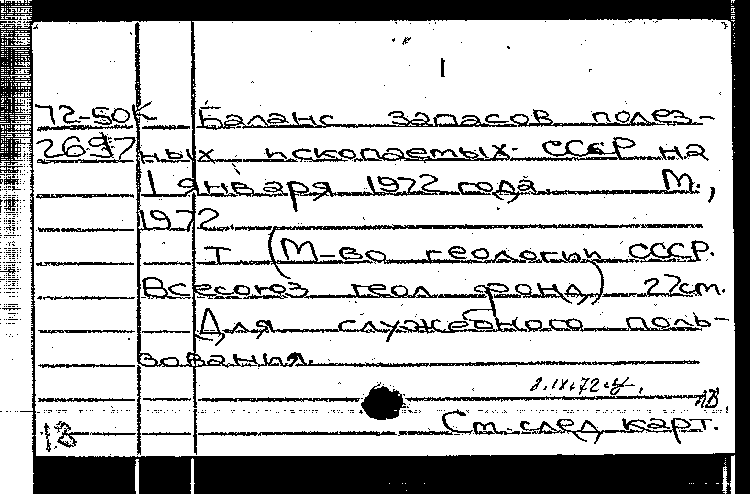 1
72-50К Баланс запасов полез-
2697 ных ископаемых СССР на
1 января 1972 года. М.,
1972.
т (М-во геологии СССР.
Всесоюз геол фонд) 27см.
Для служебного поль-
зования.
Ст. след карт.